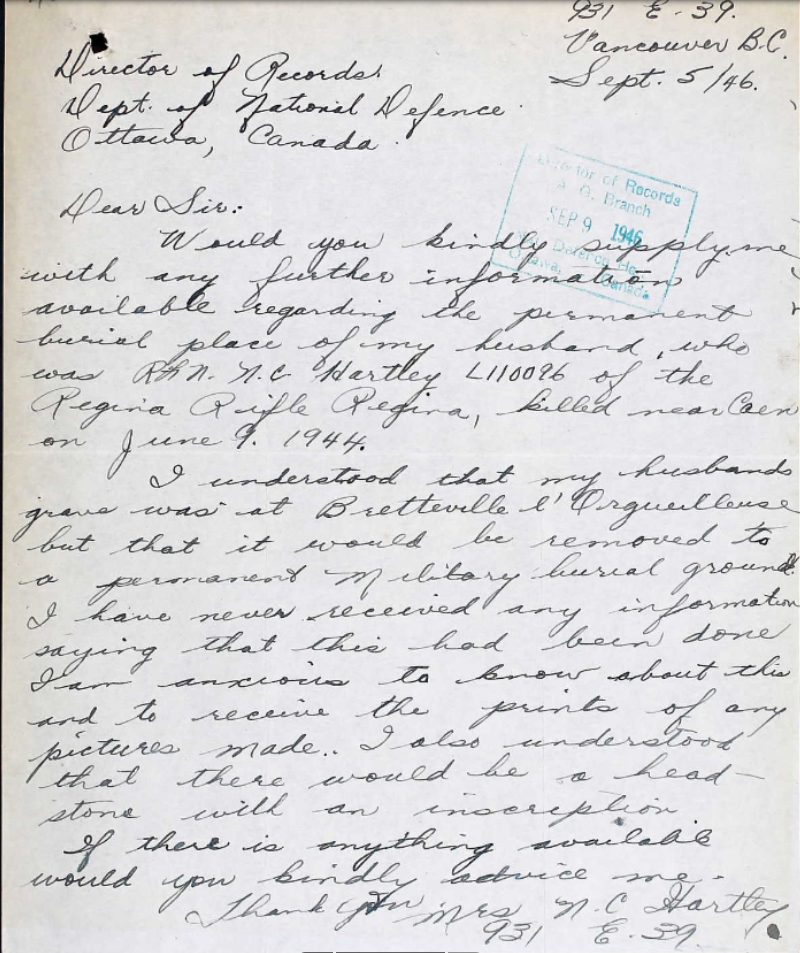 931 E. 39.
Vancouver B.C.
Sept. 5/46.
Director of Records
Dept. of National Defence
Ottawa, Canada.
Director of Records
A. G. Branch
SEP 9 1946
Ottawa, Canada
Dear Sir:
Would you kindly supply me
with any further information
available regarding the permanent
burial place of my husband, who
was Rfn. N.C Hartley L110096 of the
Regina Rifle Regina, killed near Caen
on June 9. 1944.
I understood that my husbands
grave was at Bretteville l'Orgueilleuse
but that it would be removed to
a permanent Military burial ground.
I have never received any information
saying that this had been done
I am anxious to know about this
and to receive the prints of any
pictures made.. I also understood
that there would be a head-
stone with an inscription
If there is anything available
would you kindly advice me.
Thank you Mrs N.C Hartley
931 E. 39.